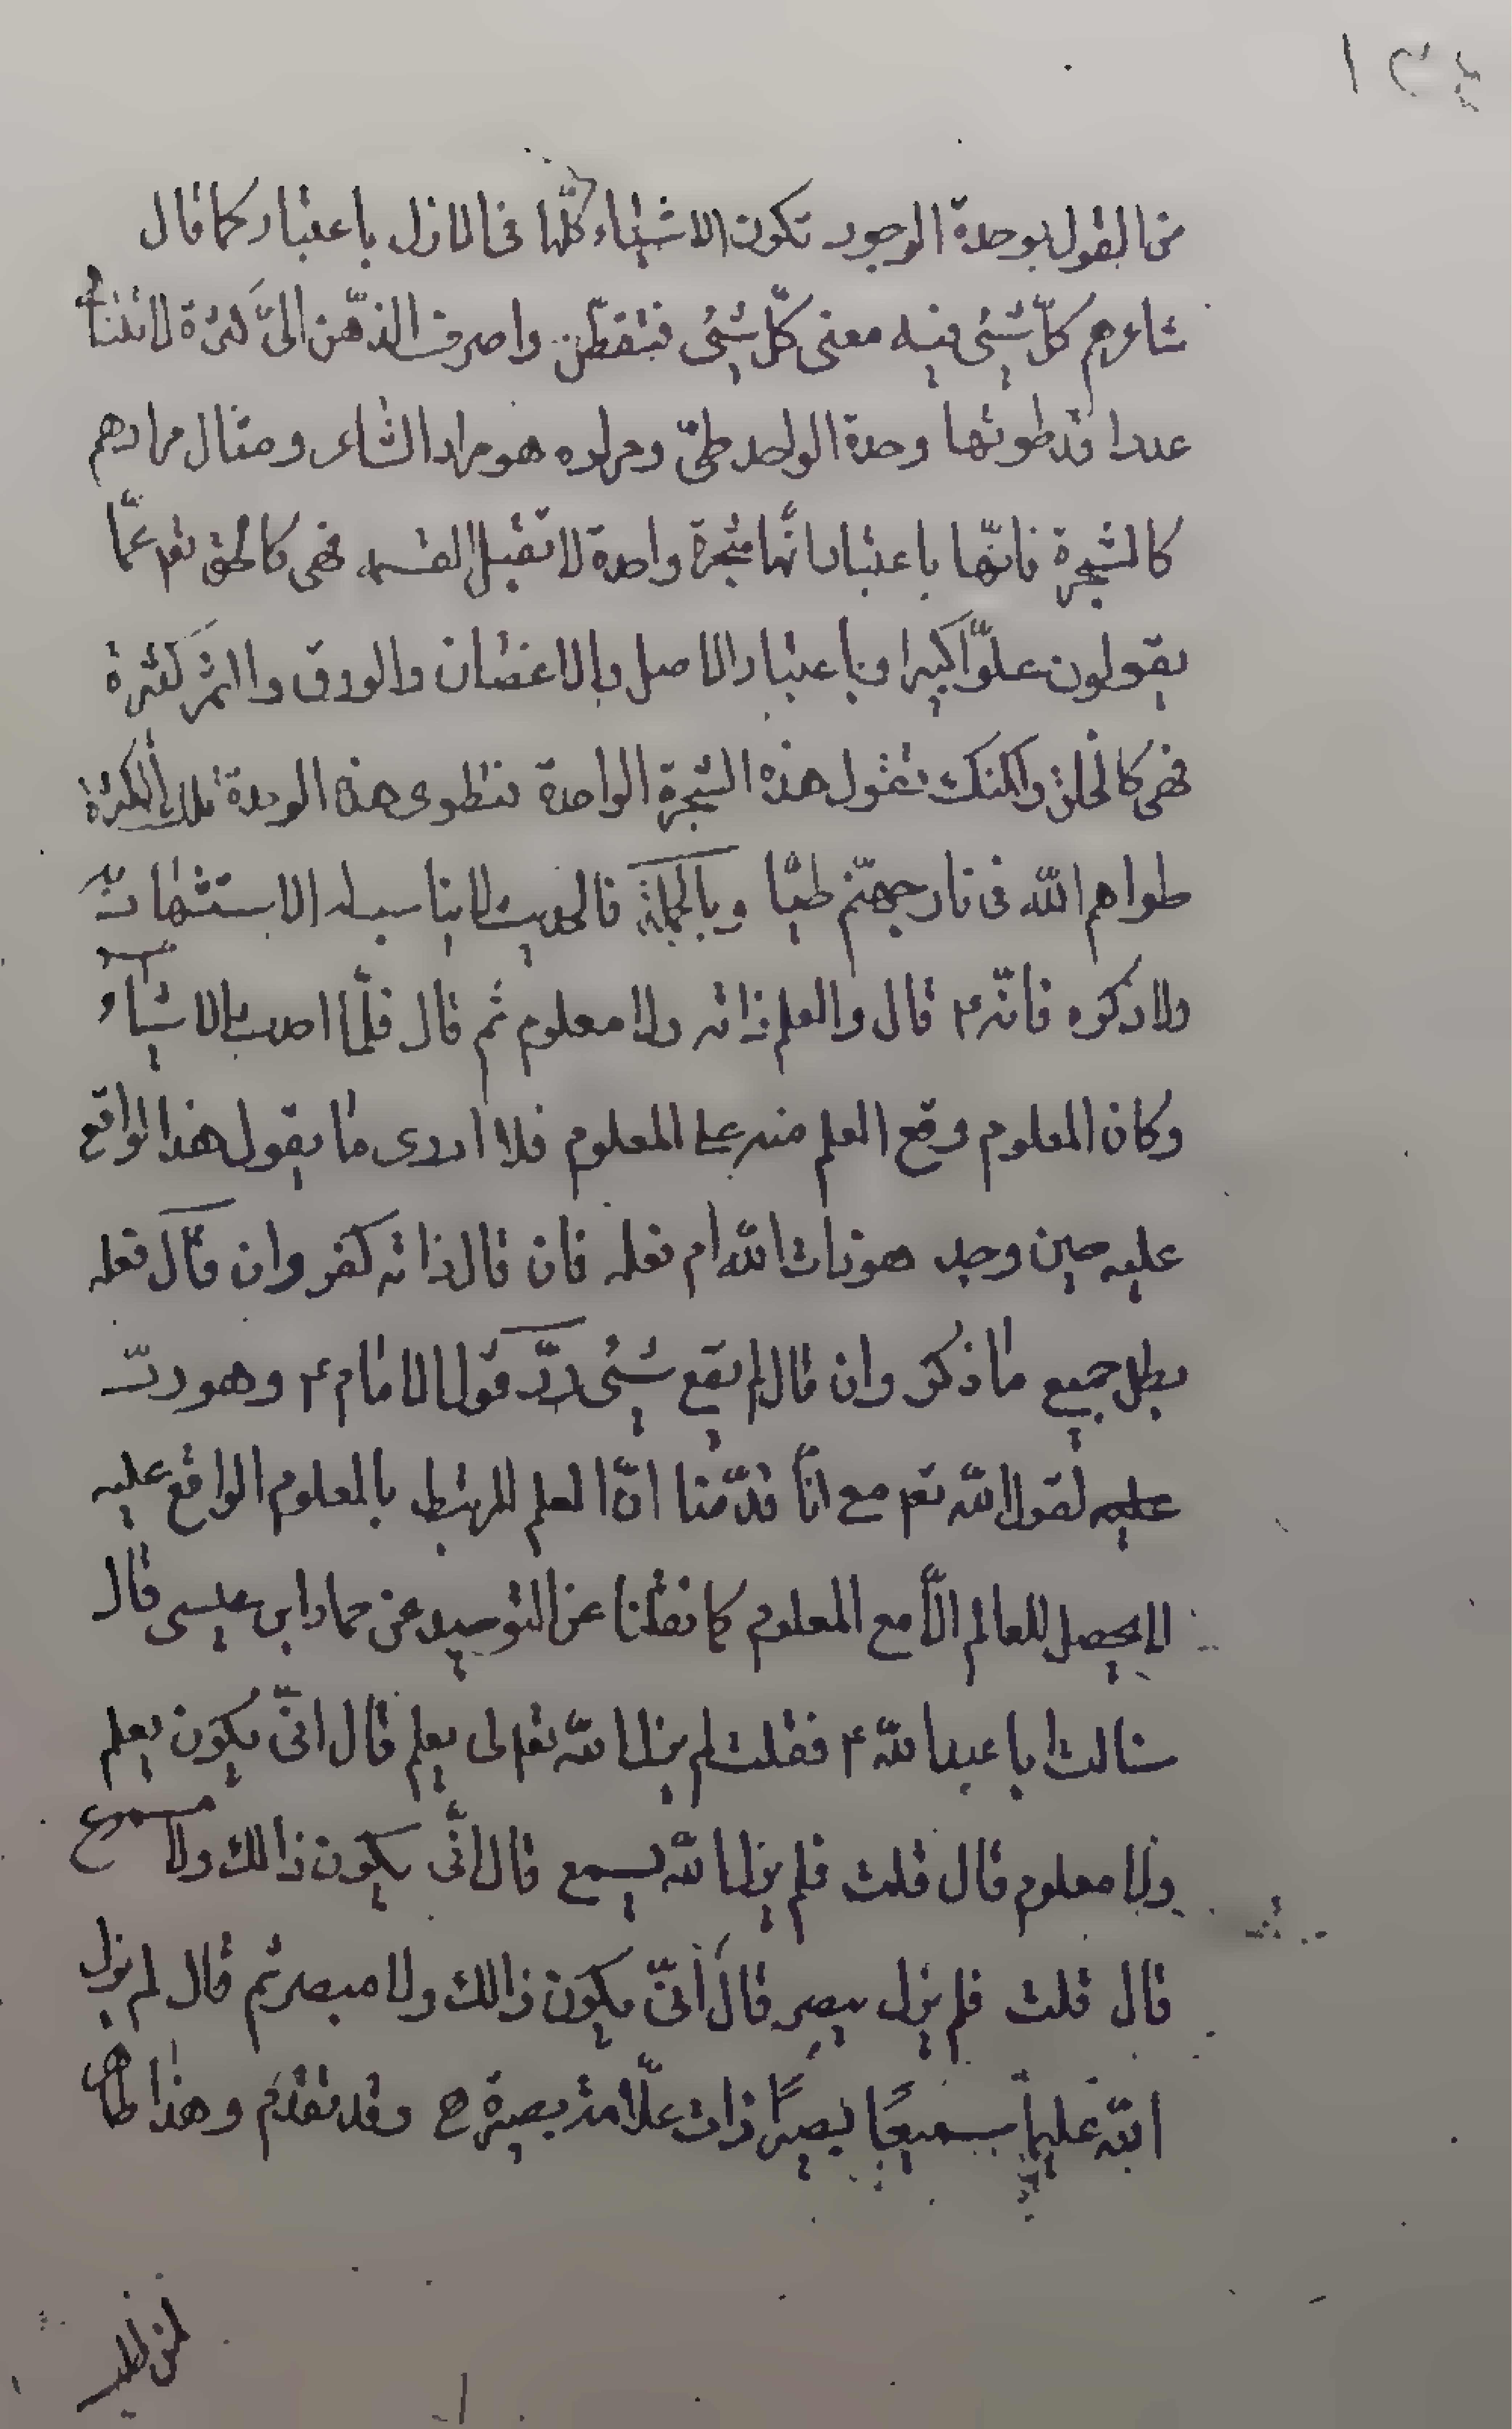 من القول بوحدة الوجود تكون الاشياء كلّها فى الازل باعتبار كما قال
شاعرهم كلّ شيئ فيه معنى كلّ شيئ فتفطّن واصرف الذّهن الىّ كثرة لا تتناهى
عددا قد طوتها وحدة الواحد طىّ ومراده هو مراد الشاعر ومثال مرادهم
كالشجرة فانّها باعتبار انّها شجرة واحدة لا تقبل القسمه فهى كالحق تعم عمّا
يقولون علوّا كبيرا وباعتبار الاصل والاغصان والورق والثمر كثيرة
فهى كالخلق ولكنك تقول هذه الشجرة الواحدة فتطوى هذه الوحدة تلك الكثرة
طواهم الله فى نار جهنّم طيّا وبالجملة فالحديث لا يناسبه الاستشهاد به
ولا ذكره فانّه ۴ قال والعلم ذاته ولا معلوم ثم قال فلمّا احدث الاشياء
وكان المعلوم وقع العلم منه على المعلوم فلا ادرى ما يقول هذا الواقع
عليه حين وجد هو ذات الله ام فعله فان قال ذاته كفر وان قال فعله
بطل جميع ما ذكر وان قال لم يقع شيئ ردّ قول الامام ۴ وهو ردّ
عليه لقول الله تعم مع انّا قدّمنا انّ العلم المرتبط بالمعلوم الواقع عليه
لا يحصل للعالم الّا مع المعلوم كما نقلنا عن التوحيد عن حماد ابن عيسى قال
سئالت ابا عبد الله ۴ فقلت لم يزل الله تعالى يعلم قال انّى يكون يعلم
ولا معلوم قال قلت فلم يزل الله يسمع قال انّى يكون ذالك ولا مسموع
قال قلت فلم يزل يبصر قال انّى يكون ذالك ولا مبصر ثم قال لم يزل
الله عليماً سميعًا بصيرًا ذات علّامة بصيرة ح وقد تقدم وهذا ظاهر